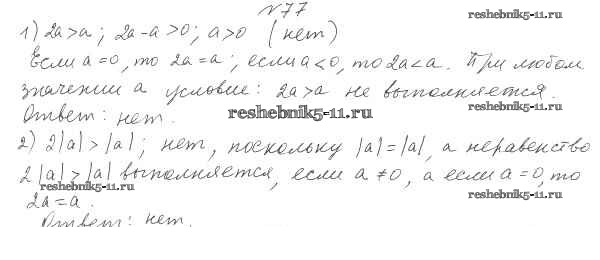 №77
reshebnik5-11.ru
1) 2a>a; 2a-a>0; a>0 (нет)
Если a=0, то 2a=a; если a<0, то 2a<a. При любом
reshebnik5-11.ru
значении a условие: 2a>a не выполняется.
reshebnik5-11.ru
Ответ: нет. reshebnik5-11.ru
2) 2|a|>|a|; нет, поскольку |a|=|a|, а неравенство
reshebnik5-11.ru
2|a|>|a| выполняется, если a≠0, а если a=0, то
reshebnik5-11.ru reshebnik5-11.ru
2a=a.
Ответ: нет.